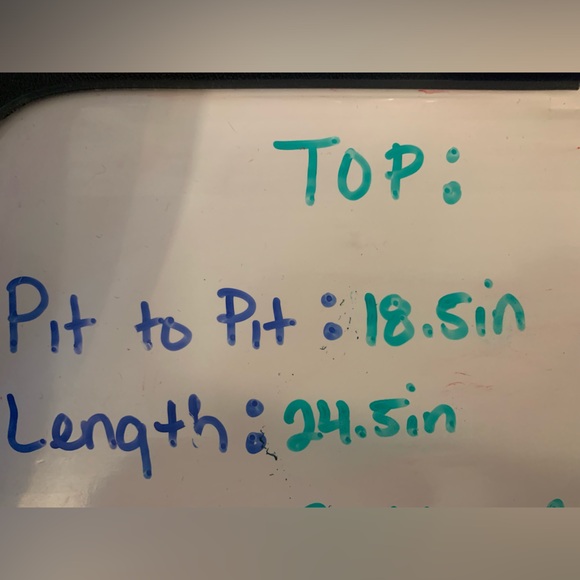 TOP:
Pit to Pit: 18.5in
Length: 24.5in